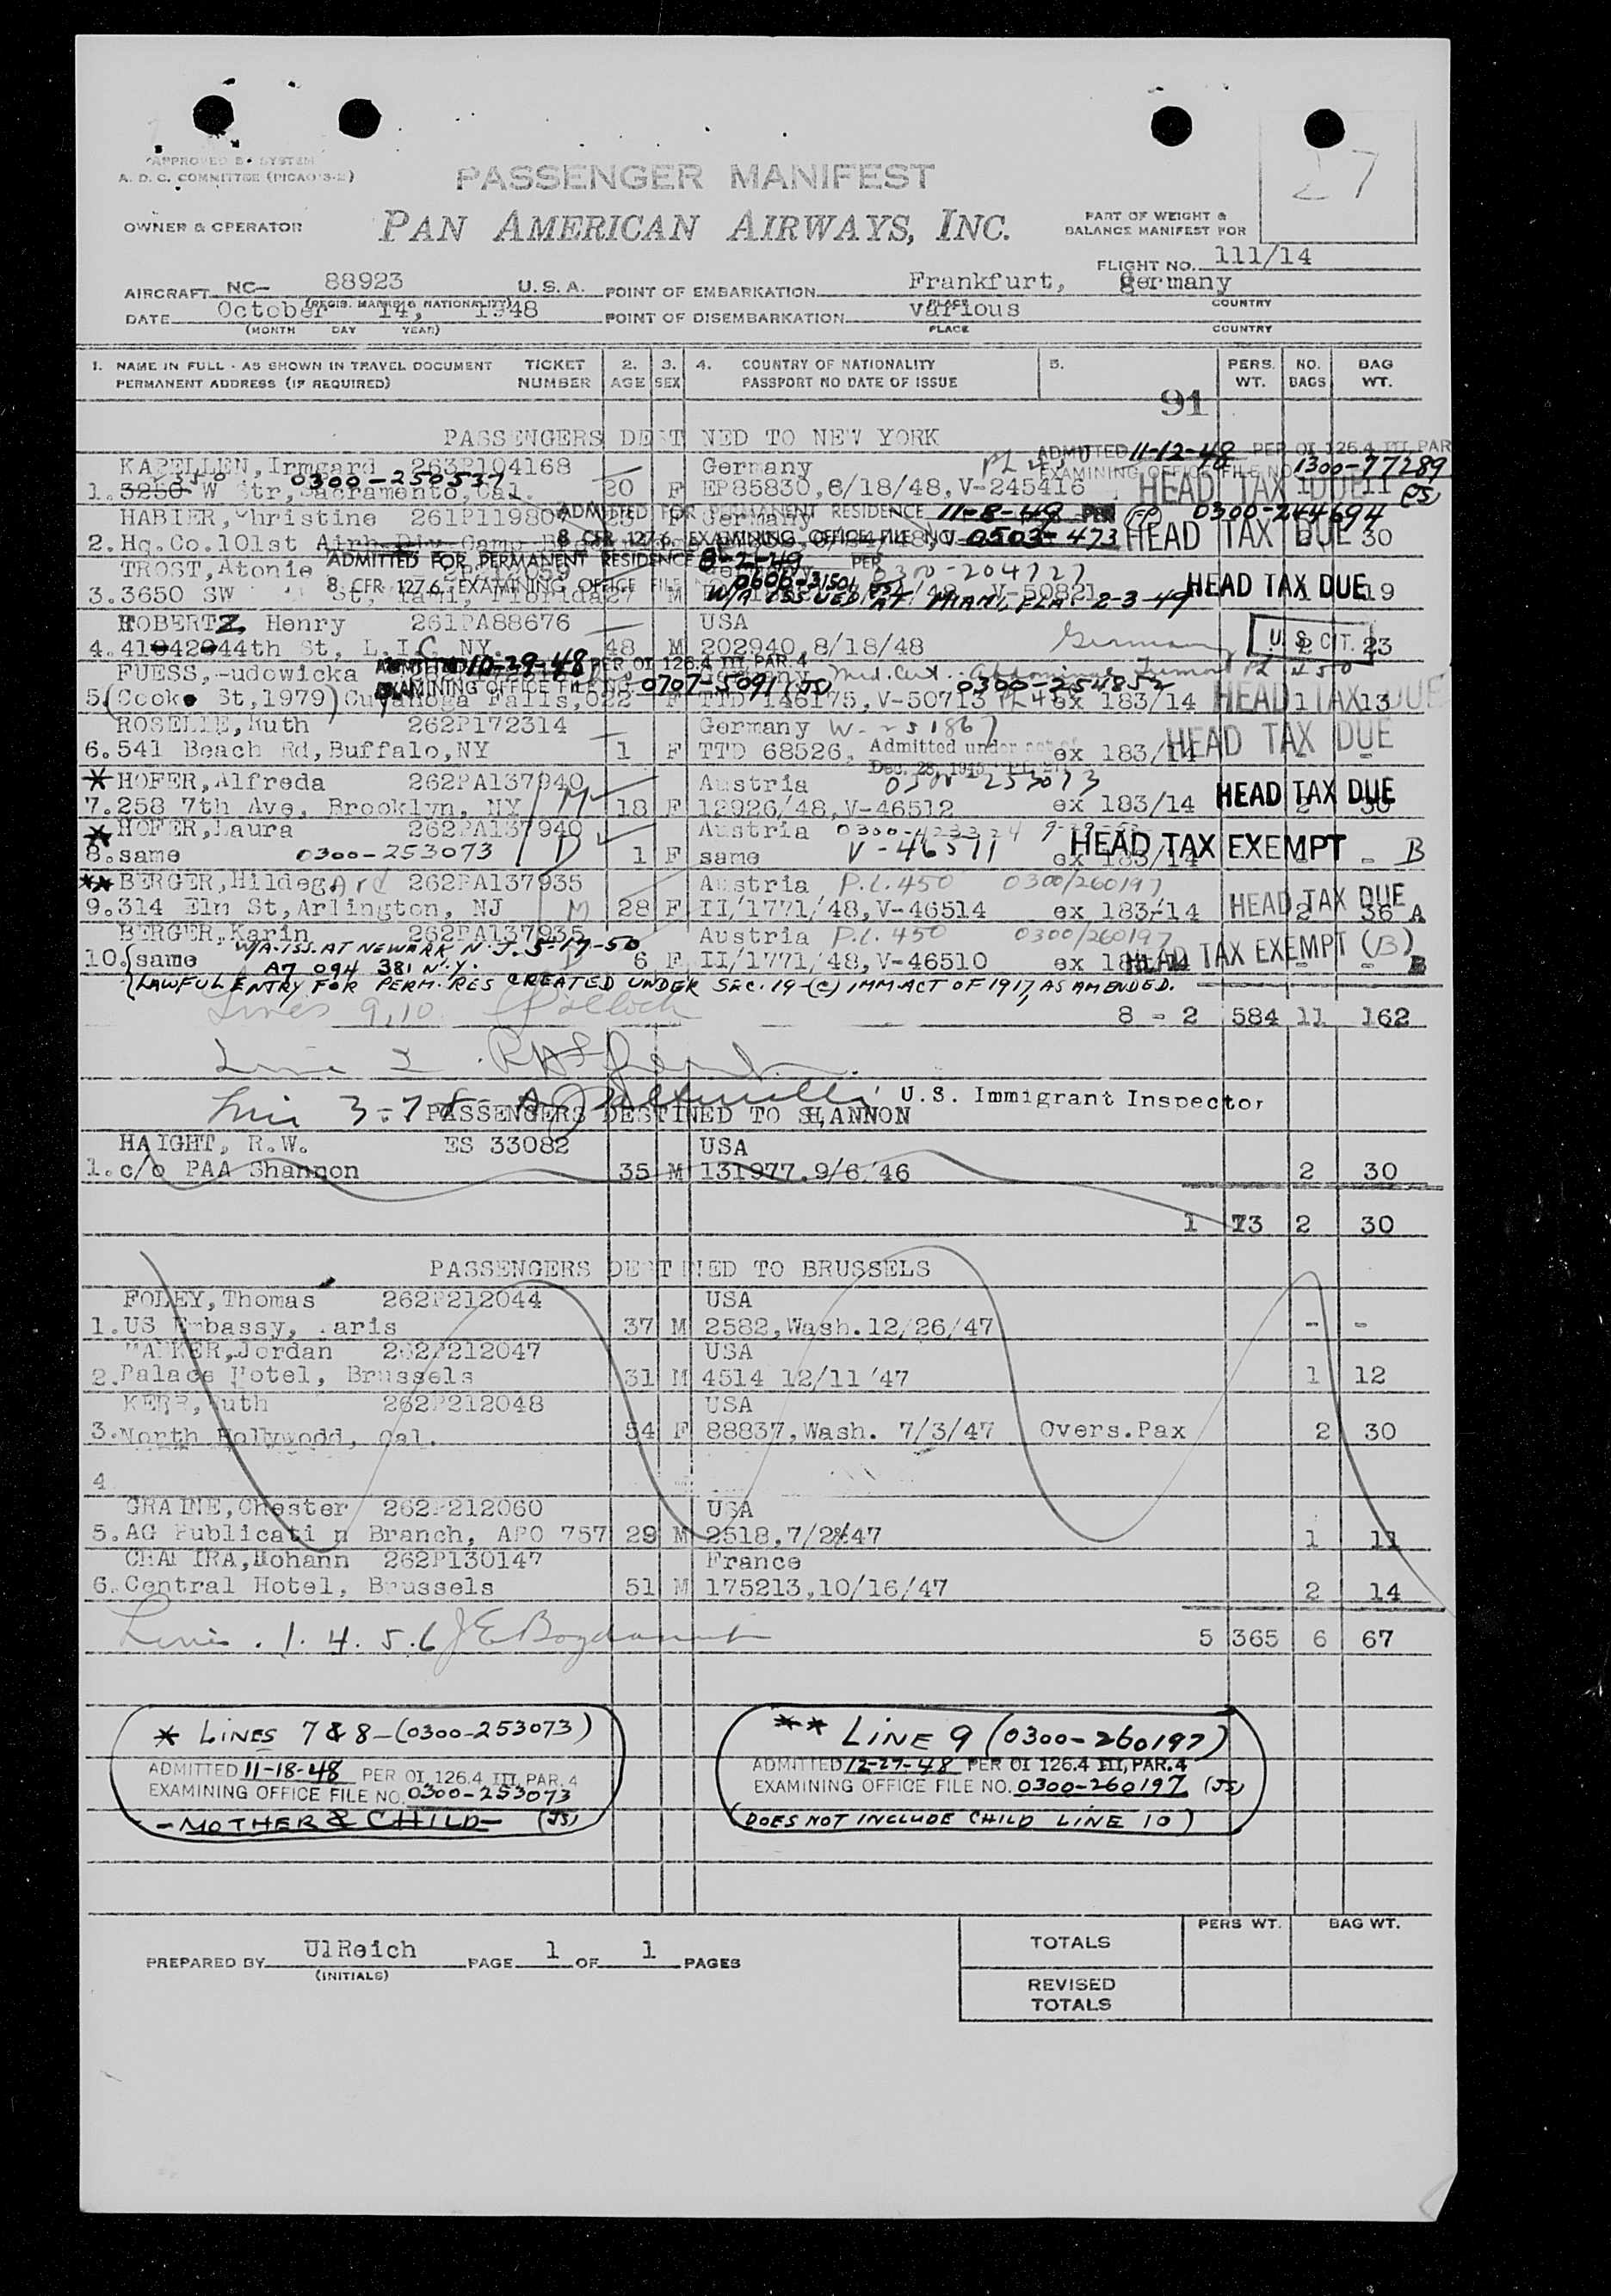 APPROVED BY SYSTEM
A. D. C. COMMITTEE (PICAO'S-2)
27
PASSENGER MANIFEST
OWNER & OPERATOR
PAN AMERICAN AIRWAYS, INC.
PART OF WEIGHT &
BALANCE MANIFEST FOR
FLIGHT NO. 111/14
AIRCRAFT NC- 88923 U.S.A. POINT OF EMBARKATION Frankfurt, Germany
(REGIS. MARKS & NATIONALITY) PLACE COUNTRY
DATE October 14, 1948 POINT OF DISEMBARKATION various
(MONTH DAY YEAR) PLACE COUNTRY
1. NAME IN FULL - AS SHOWN IN TRAVEL DOCUMENT TICKET 2. 3. 4. COUNTRY OF NATIONALITY 5. PERS. NO. BAG
PERMANENT ADDRESS (IF REQUIRED) NUMBER AGE SEX PASSPORT NO DATE OF ISSUE WT. BAGS WT.
91
PASSENGERS DESTINED TO NEW YORK
ADMITTED 11-12-48 PER OI 126.4 III, PAR
KAPELLEN, Irmgard 263P104168 Germany EXAMINING OFFICE FILE NO 1300-77289
0300-250537
1. 3250 W Str, Sacramento, Cal. 20 F EP85830, 6/18/48, V-245416 HEAD TAX DUE 1 11 (JS)
HABIER, Christine ADMITTED FOR PERMANENT RESIDENCE 11-8-49 PER 0300-244694
2. Hq. Co. 101st 8 CFR 127.6 EXAMINING OFFICE FILE NO. 0503-473 HEAD TAX DUE 30
TROST, Atonie ADMITTED FOR PERMANENT RESIDENCE 8-2-49 PER 0300-204727
8 CFR 127.6 EXAMINING OFFICE FILE 0600-31501
3. 3650 SW St, Miami, Florida 27 M V-50821 HEAD TAX DUE 19
W/A ISSUED AT MIAMI, FLA. 2-3-49
ROBERTZ, Henry 261PA88676 USA
4. 44th St, L.I.C. NY. 48 M 202940, 8/18/48 German U.S. CIT. 2 23
FUESS, -udowicka ADMITTED 10-29-48 PER OI 126.4 III, PAR. 4 Med. Cert. Abdominal Tumor PL 450
EXAMINING OFFICE FILE NO. 0707-5091 (JS) 0300-254852
5 (Cook St, 1979) Cuyahoga Falls, O 22 F TTD 146175, V-50713 ex 183/14 HEAD TAX DUE 1 13
ROSELIE, Ruth 262P172314 Germany
6. 541 Beach Rd, Buffalo, NY 1 F TTD 68526, Admitted under act of ex 183/14 HEAD TAX DUE -
Dec. 28, 1945
* HOFER, Alfreda 262PA137940 Austria 0300-253073
7. 258 7th Ave, Brooklyn, NY M 18 F 12926/48, V-46512 ex 183/14 HEAD TAX DUE 2 30
* HOFER, Laura 262PA137940 Austria
8. same 0300-253073 D 1 F same V-46511 ex 183/14 HEAD TAX EXEMPT - B
** BERGER, Hildegard 262PA137935 Austria P.L. 450 0300/260197
9. 314 Elm St, Arlington, NJ M 28 F II/1771/48, V-46514 ex 183/14 HEAD TAX DUE 2 36 A
BERGER, Karin 262PA137935 Austria P.L. 450 0300/260197
W/A. ISS. AT NEWARK N.J. 5-17-50
10. same 6 F II/1771/48, V-46510 ex 183/14 HEAD TAX EXEMPT (B) - - B
A7 094 381 N.Y.
(LAWFUL ENTRY FOR PERM. RES CREATED UNDER SEC. 19-(c) IMM. ACT OF 1917, AS AMENDED.
Lines 9, 10
8 - 2 584 11 162
Line 2
Line 3-7 U.S. Immigrant Inspector
PASSENGERS DESTINED TO SHANNON
HAIGHT, R.W. ES 33082 USA
1. c/o PAA Shannon 35 M 131977. 9/6/46 2 30
1 73 2 30
PASSENGERS DESTINED TO BRUSSELS
FOLEY, Thomas 262P212044 USA
1. US Embassy, Paris 37 M 2582, Wash. 12/26/47 - -
Jordan 262P212047 USA
2. Palace Hotel, Brussels 31 M 4514 12/11/47 1 12
KERR, Ruth 262P212048 USA
3. North Hollywodd, Cal. 54 F 88837, Wash. 7/3/47 Overs.Pax 2 30
4
GRAINE, Chester 262P212060 USA
5. AG Publicati n Branch, APO 757 29 M 2518, 7/2 47 1 11
262P130147 France
6. Central Hotel, Brussels 51 M 175213, 10/16/47 2 14
Lines. 1. 4. 5. 6
5 365 6 67
* LINES 7 & 8 - (0300-253073)
ADMITTED 11-18-48 PER OI 126.4 III, PAR. 4
EXAMINING OFFICE FILE NO. 0300-253073
- MOTHER & CHILD - (JS)
** LINE 9 (0300-260197)
ADMITTED 12-27-48 PER OI 126.4 III, PAR. 4
EXAMINING OFFICE FILE NO. 0300-260197 (JS)
(DOES NOT INCLUDE CHILD LINE 10)
PERS WT. BAG WT.
TOTALS
PREPARED BY UlReich PAGE 1 OF 1 PAGES
(INITIALS)
REVISED
TOTALS